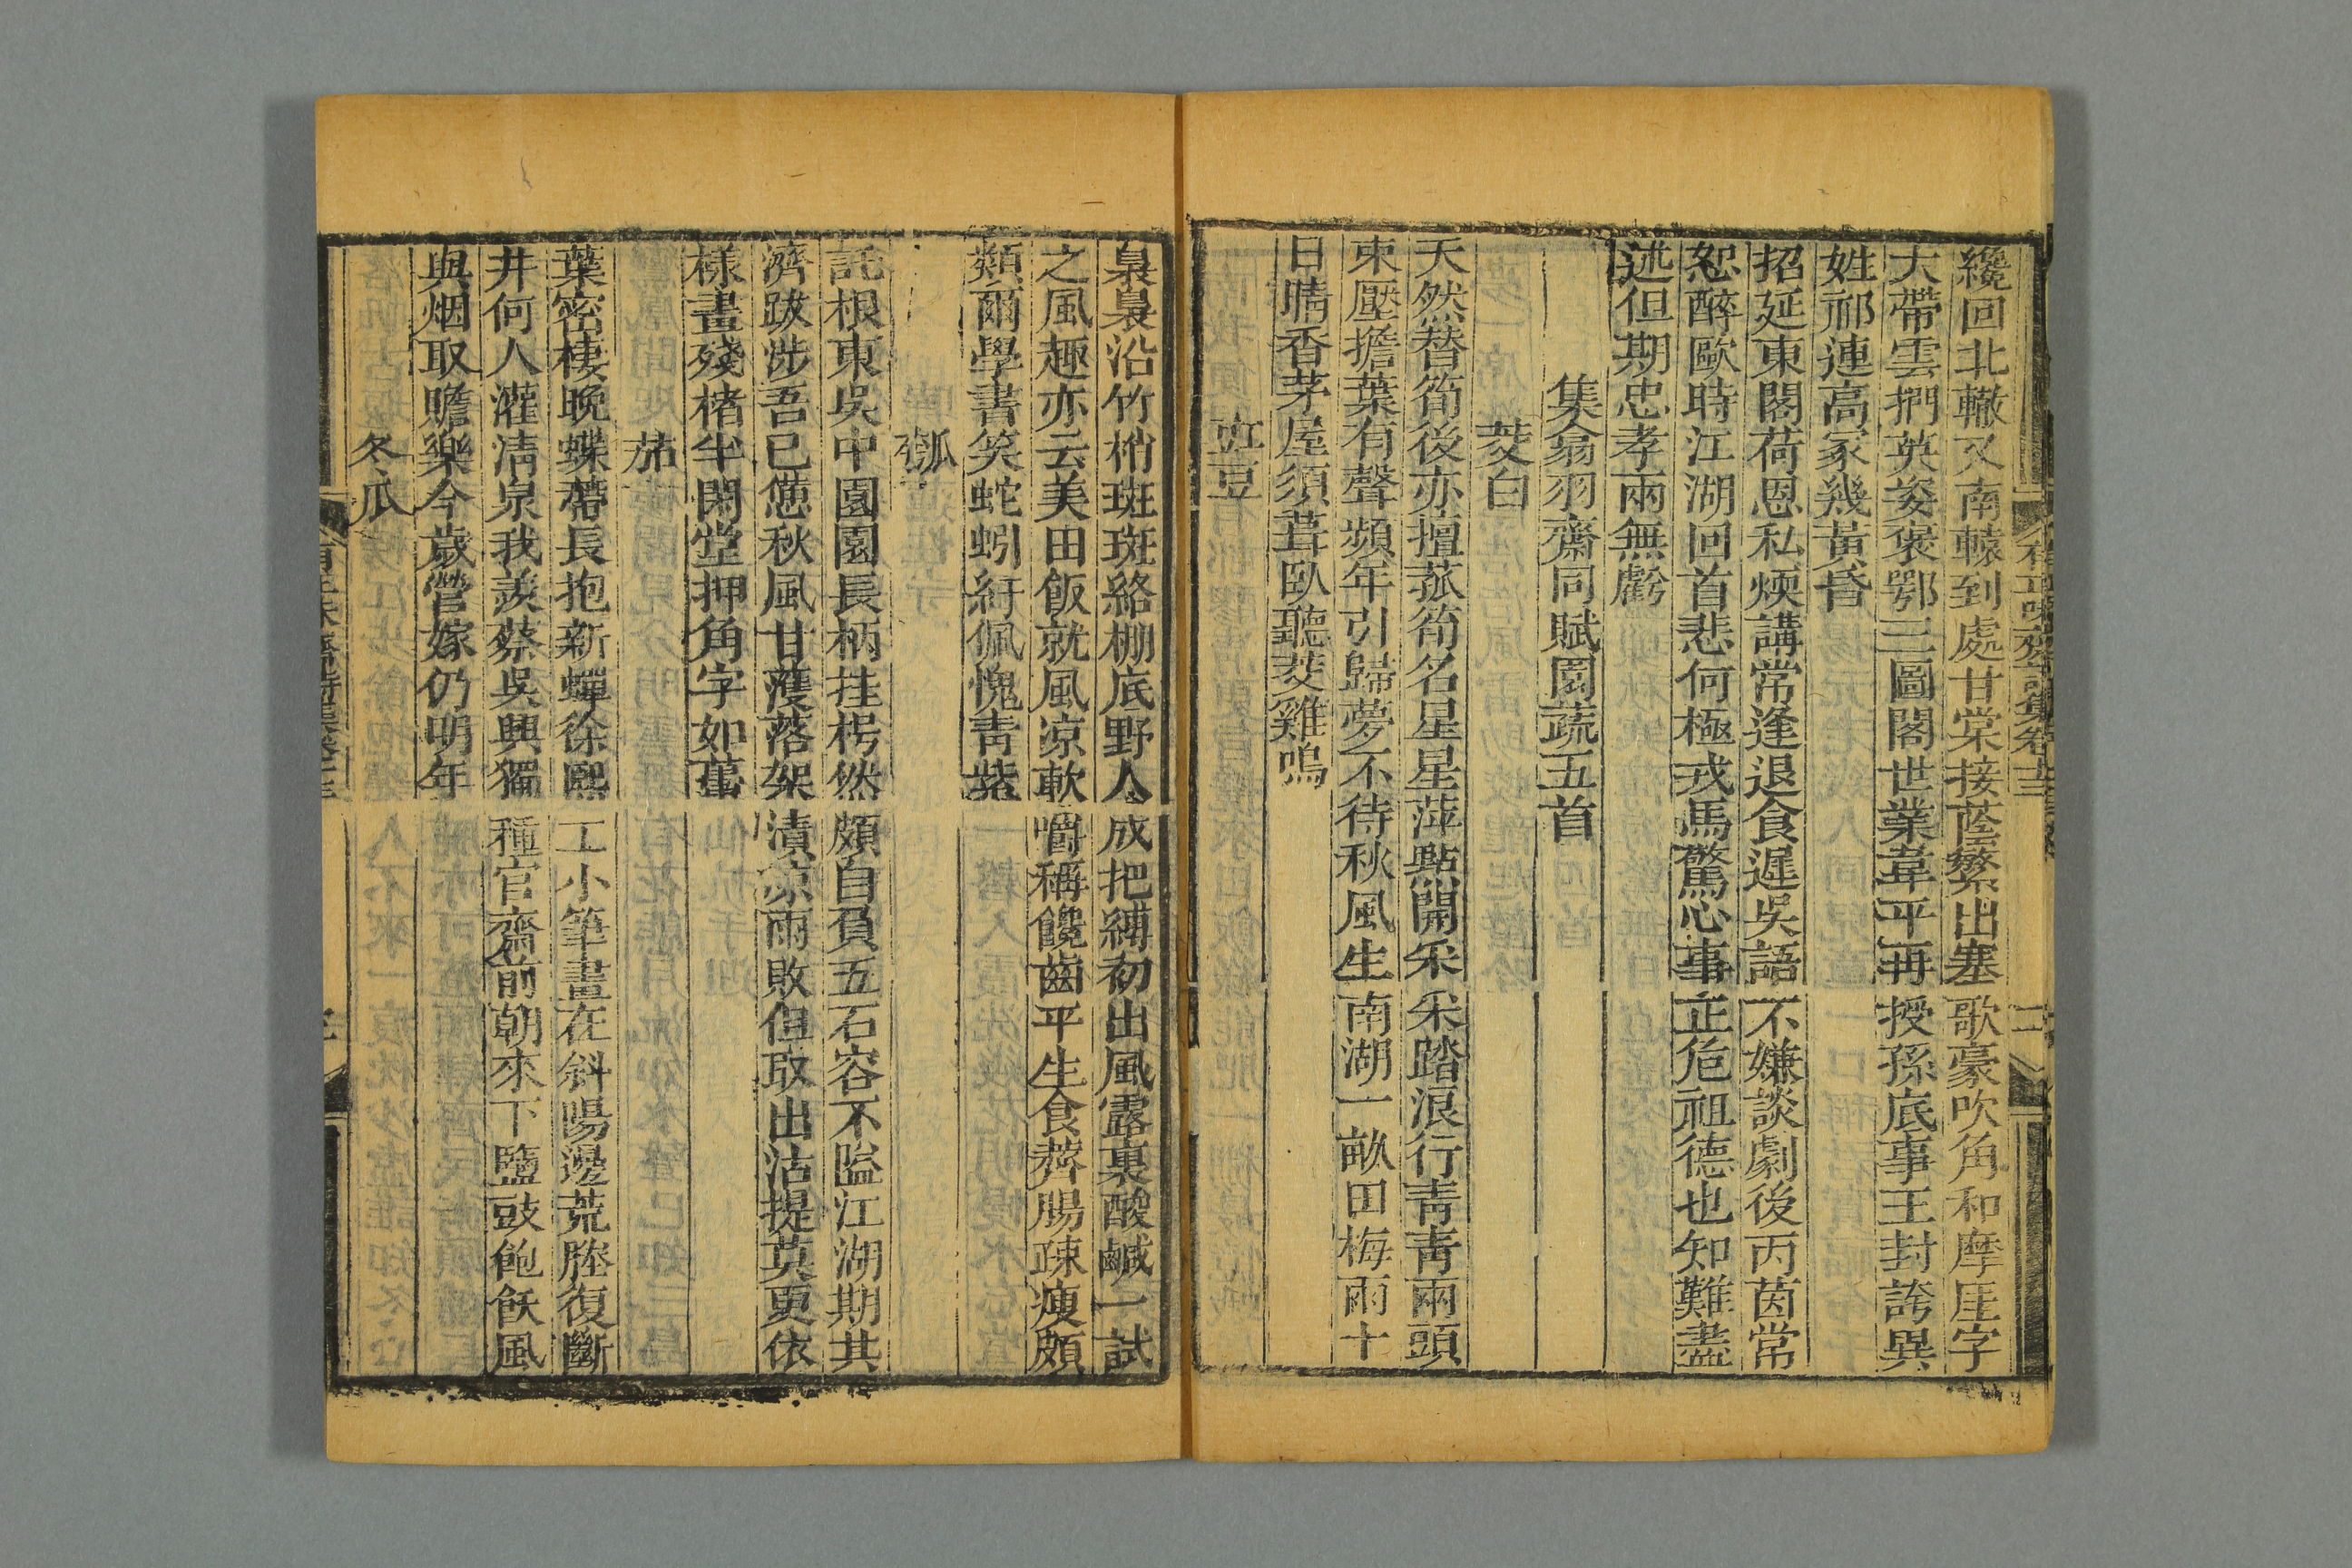 纔回北轍又南轅到處甘棠接蔭繁出塞歌豪吹角和摩厓字
大帶雲捫英姿褒鄂三圖閣世業韋平再授孫底事王封誇異
姓祁連高冢幾黃昏
招延東閣荷恩私煗講常逢退食遲吳語不嫌談劇後丙茵常
恕醉歐時江湖回首悲何極戎馬驚心事正危祖德也知難盡
述但期忠孝兩無虧
集翁羽齋同賦園蔬五首
茭白
天然替筍後亦擅菰筍名星星萍點開釆釆踏浪行靑靑兩頭
束壓擔葉有聲頻年引歸夢不待秋風生南湖一畝田梅雨十
日晴香茅屋須葺臥聽茭雞鳴
豇豆
裊裊沿竹梢斑斑絡棚底野人成把縛初出風露裏酸鹹一試
之風趣亦云美田飯就風凉軟嚼稱饞齒平生食薺腸疎瘦頗
類爾學書笑蛇蚓紆佩愧靑紫
瓠
託根東吳中園園長柄挂枵然頗自負五石容不隘江湖期其
濟跋涉吾已憊秋風甘濩落架漬凉雨敗但取出沽提莫更依
樣畫殘楮半閑堂押角字如舊
茄
葉密棲晚蝶蔕長抱新蟬徐熙工小筆畫在斜陽邊荒塍復斷
井何人灌淸泉我羨蔡吳興獨種官齋前朝來下鹽豉飽飫風
與烟取贍樂今歲營嫁仍明年
冬瓜
有正味齋詩集卷十三